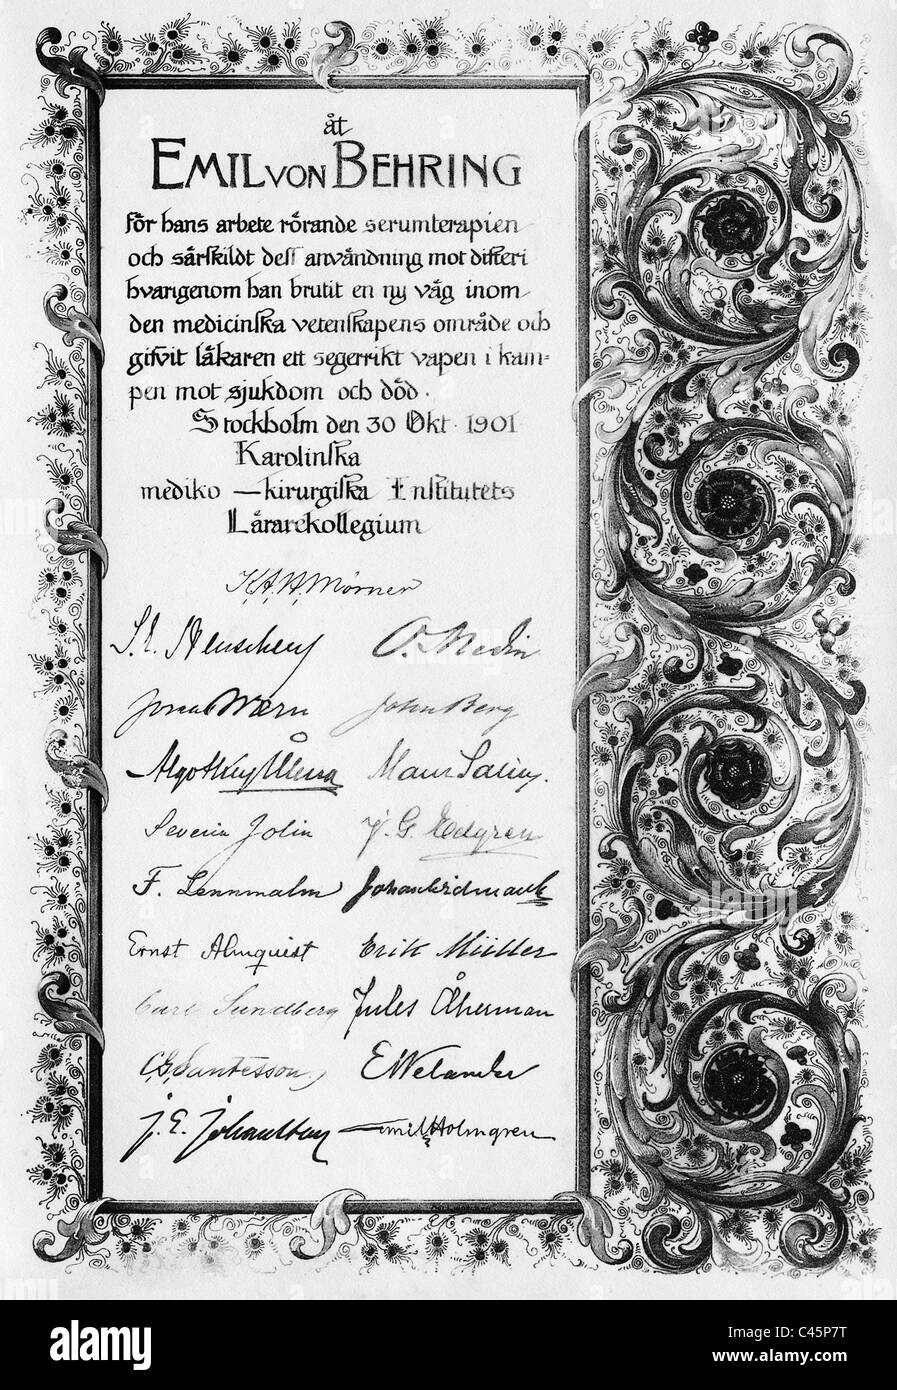 åt
EMIL VON BEHRING
för hans arbete rörande serumterapien
och särskildt dess användning mot difteri
hvarigenom han brutit en ny väg inom
den medicinska vetenskapens område och
gifvit läkaren ett segerrikt vapen i kam=
pen mot sjukdom och död.
Stockholm den 30 Okt. 1901
Karolinska
mediko—kirurgiska Institutets
Lärarekollegium
K.A.H. Mörner
S. E. Henschen O. Medin
Jonas Wærn John Berg
Algot Key-Åberg
Severin Jolin J. G. Edgren
F. Lennmalm Johan Widmark
Ernst Almquist Erik Müller
Carl Sundberg Jules Åkerman
C.G. Santesson E Welander
J. E. Johansson Emil Holmgren
alamy
Image ID: C45P7T
www.alamy.com